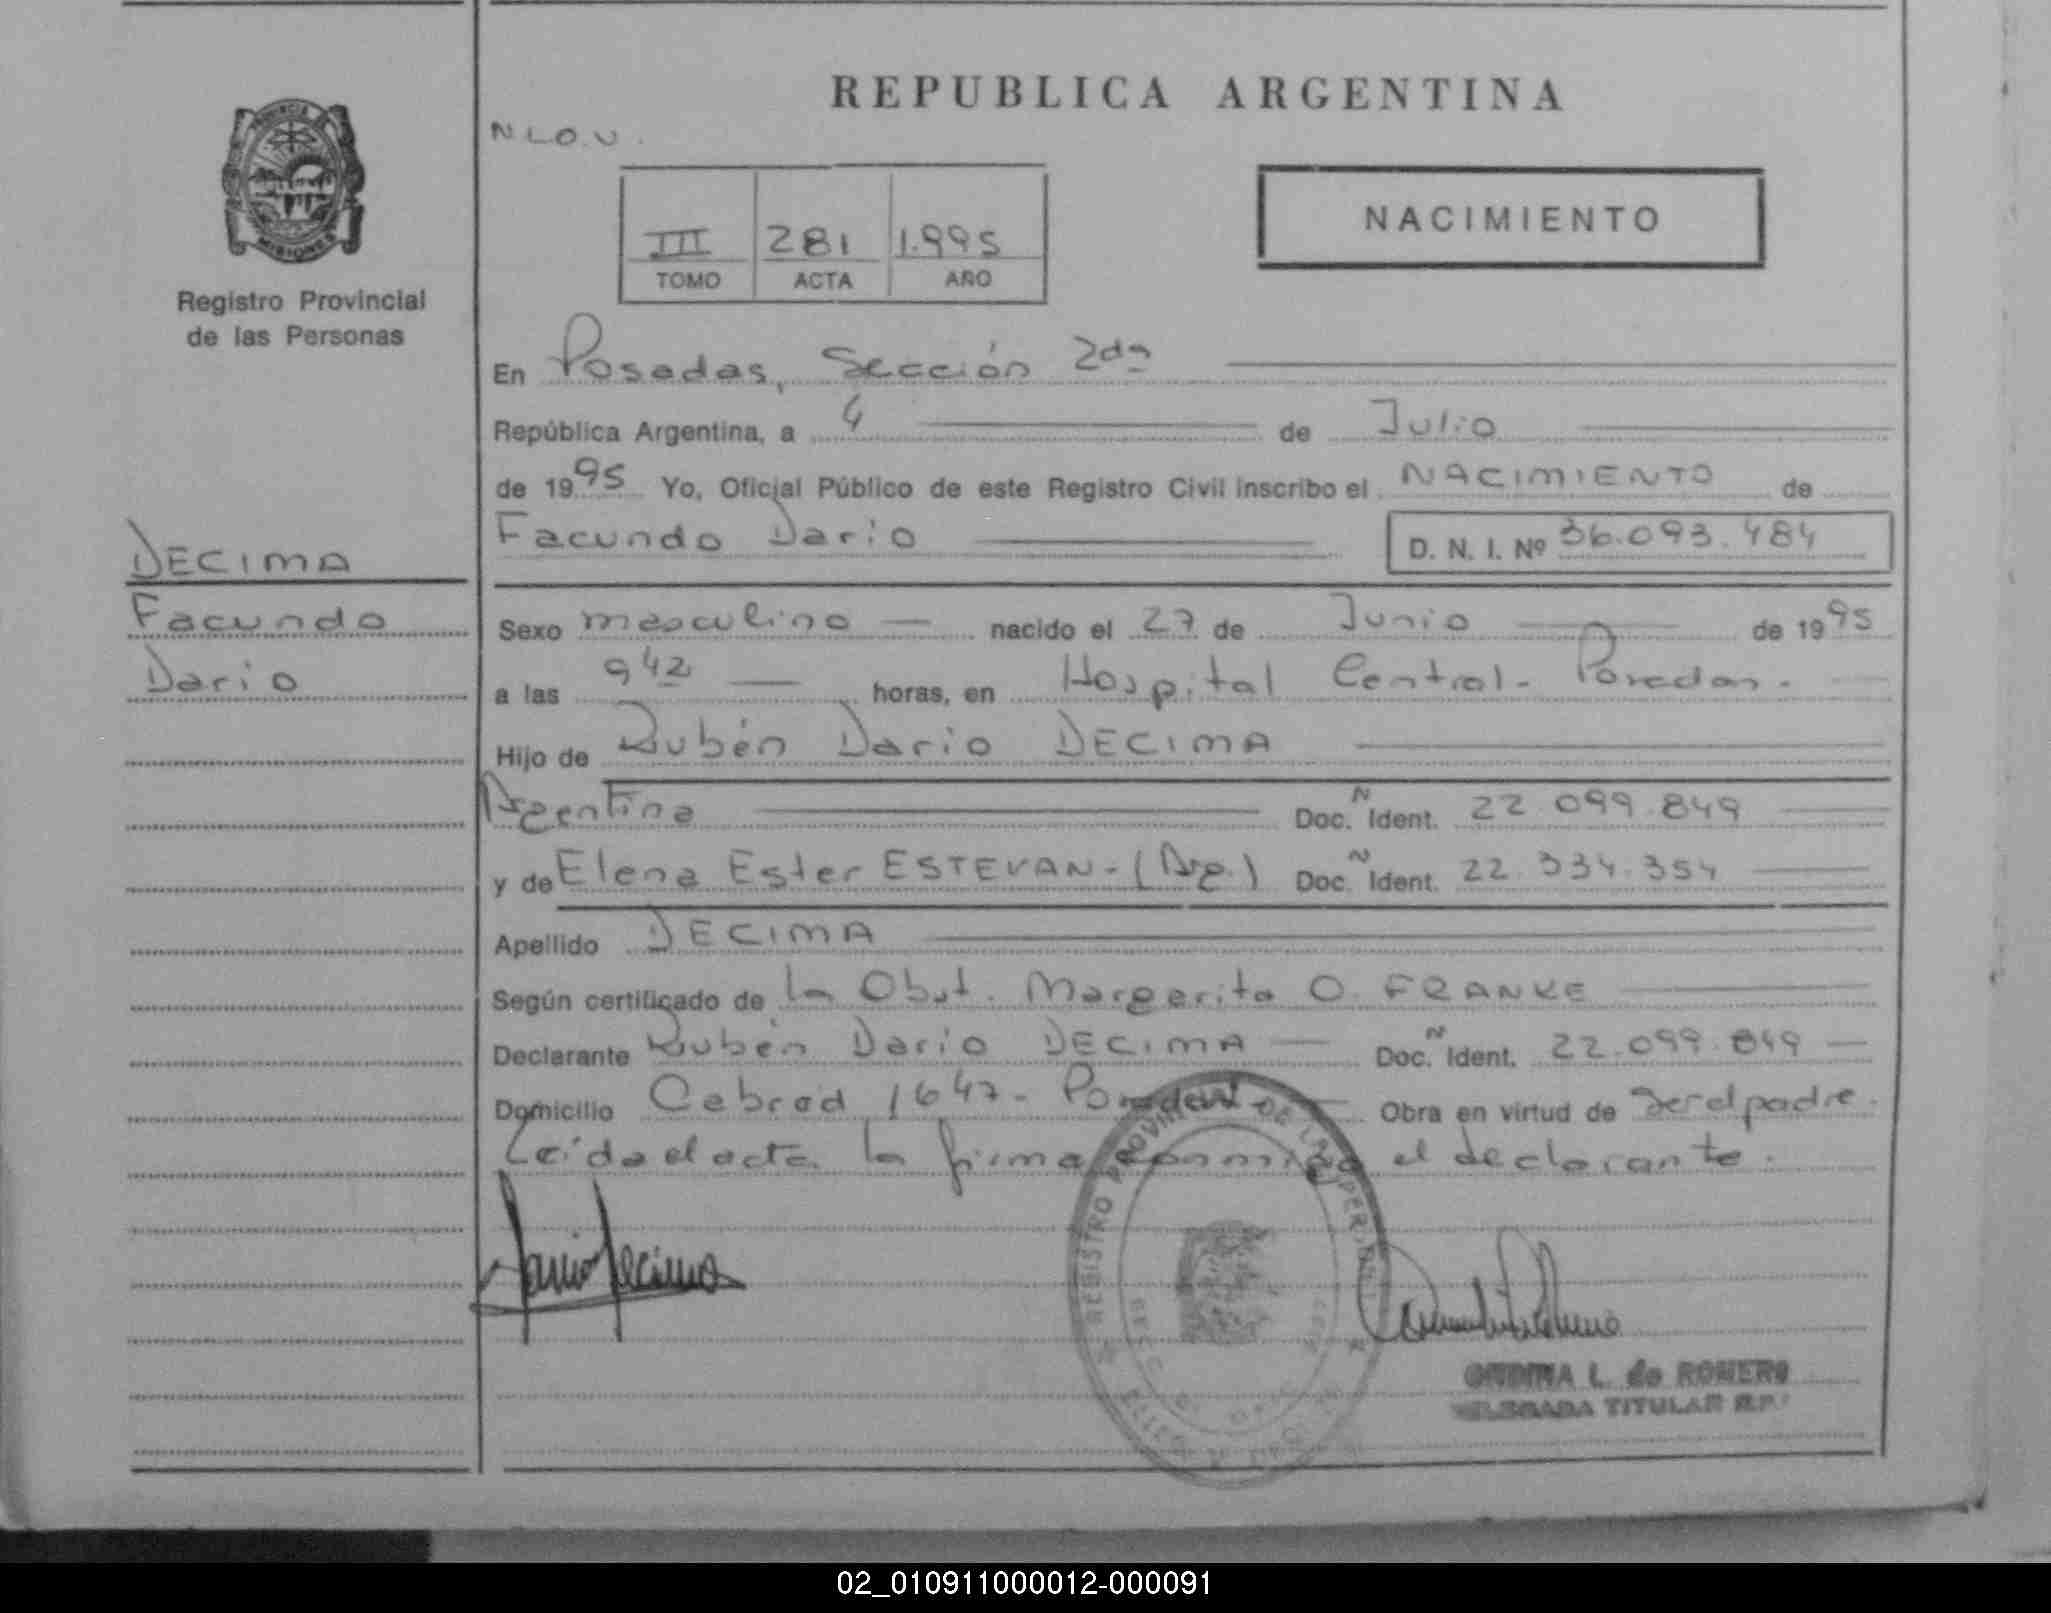 REPUBLICA ARGENTINA
N L O. U.
PROVINCIA
MISIONES
Registro Provincial
de las Personas
III 281 1.995
TOMO ACTA AÑO
NACIMIENTO
En Posadas, Sección 2da
República Argentina, a 4 de Julio
de 1995 Yo, Oficial Público de este Registro Civil inscribo el NACIMIENTO de
Facundo Dario D. N. I. Nº 36.093.484
DECIMA
Facundo
Dario
Sexo masculino nacido el 27 de Junio de 1995
a las 9 42 horas, en Hospital Central - Posadas.
Hijo de Rubén Dario DECIMA
Argentina Doc. N Ident. 22.099.849
y de Elena Ester ESTEVAN - (Arg.) Doc. N Ident. 22.334.354
Apellido DECIMA
Según certificado de la Obst. Margarita O. FRANKE
Declarante Rubén Dario DECIMA Doc. N Ident. 22.099.849
Domicilio Cabred 1647 - Posadas Obra en virtud de ser el padre.
Leída el acta la firma conmigo el declarante.
Dario Decima
REGISTRO PROVINCIAL DE LAS PERSONAS
L. de ROMERO
DELEGADA TITULAR R.P.
02_010911000012-000091